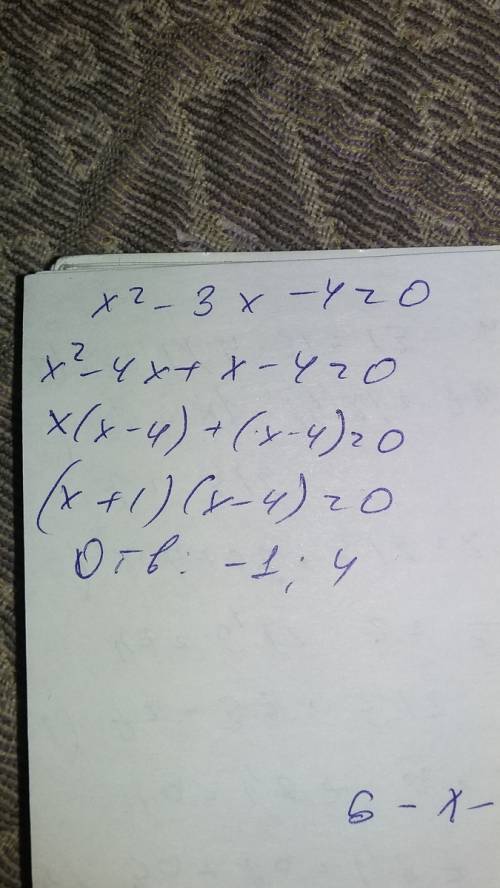 x² - 3x - 4 = 0
x² - 4x + x - 4 = 0
x(x-4) + (x-4) = 0
(x+1)(x-4) = 0
Отв: -1; 4
6 - x -